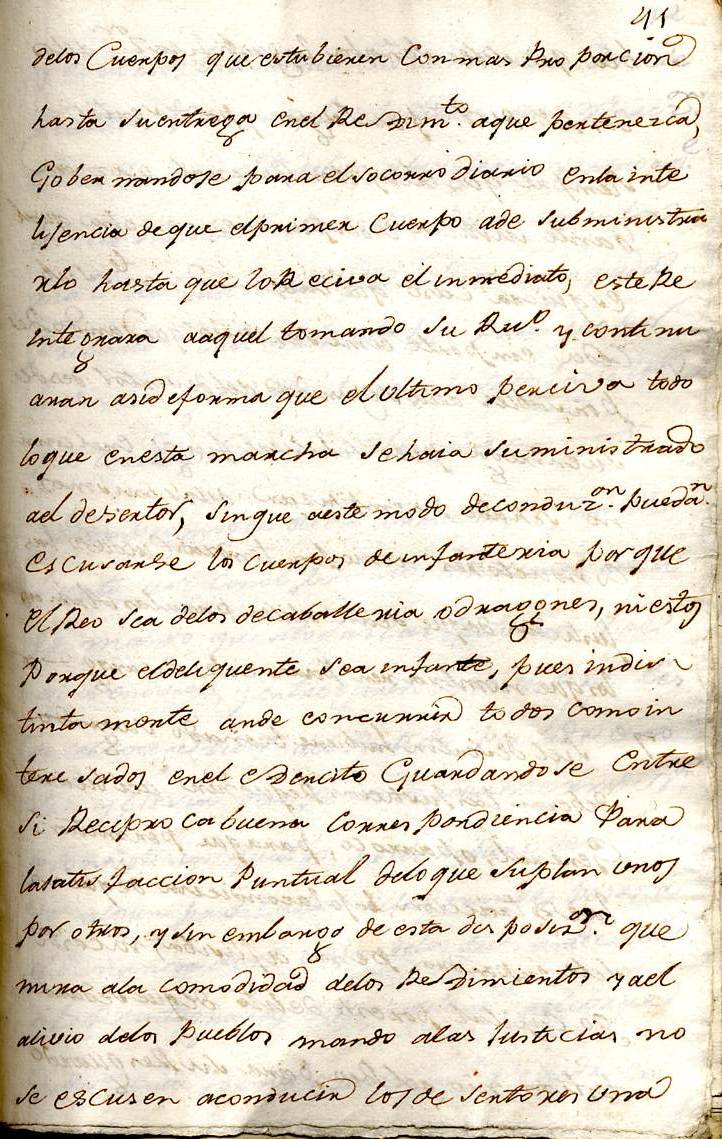 41
delos Cuerpos que estubieren Con mas Proporcion
hasta su entrega en el ReDim.to aque pertenezca,
Gobernandose para el socorro diario en la inte
lijencia de que el primer Cuerpo ade subministra
rlo hasta que lo Reciva el inmediato, este Re
integrara aaquel tomando su Rvo. y continu
aran asi de forma que el ultimo perciva todo
lo que en esta marcha se haia suministrado
ael desertor, sin que aeste modo de conduz.on puedan.
escusarse los cuerpos de infanteria por que
el Reo sea delos de caballeria o dragones, ni estos
Porque el deliquente sea infante, pues indis
tinta mente ande concurrir todos como in
tere sados en el eDercito Guardandose Entre
si Recipro ca buena Correspondiencia Para
la satisfaccion Puntual delo que suplan unos
por otros, y sin embargo de esta dis posiz.on que
mira ala comodidad delos ReDimientos y ael
alivio delos Pueblos mando alas Justicias no
se escusen aconducir los de sertores una